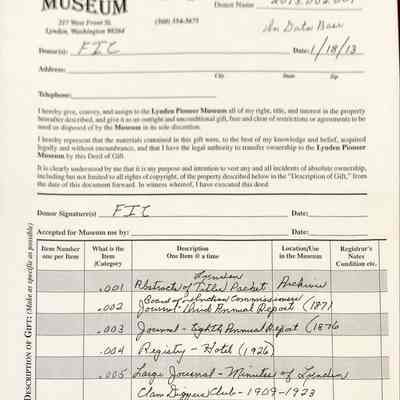 MUSEUM
Donor Name 2013.002.001
217 West Front St. (360) 354-3675
Lynden, Washington 98264
In Data Base
Donor(s): FIC Date: 1/18/13
Address:
City State Zip
Telephone:
I hereby give, convey, and assign to the Lynden Pioneer Museum all of my right, title, and interest in the property
hereafter described, and give it as an outright and unconditional gift, free and clear of restrictions or agreements to be
used or disposed of by the Museum in its sole discretion.
I hereby represent that the materials contained in this gift were, to the best of my knowledge and belief, acquired
legally and without encumbrance, and that I have the legal authority to transfer ownership to the Lynden Pioneer
Museum by this Deed of Gift.
It is clearly understood by me that it is my purpose and intention to vest any and all incidents of absolute ownership,
including but not limited to all rights of copyright, of the property described below in the "Description of Gift," from
the date of this document forward. In witness whereof, I have executed this deed
Donor Signature(s) FIC Date:
Accepted for Museum use by: Date:
DESCRIPTION OF GIFT: (Make as specific as possible)
Item Number one per Item
What is the Item /Category
Description One Item @ a time
Location/Use in the Museum
Registrar's Notes Condition etc.
.001 Abstracts of Titles Packet Archives
.002 Board of Indian Commissioners
Journal - Third Annual Report (1871
.003 Journal - Eighth Annual Report (1876
.004 Registry - Hotel (1926)
.005 Large Journal - Minutes of Lynden
Clam Diggers Club - 1909-1923